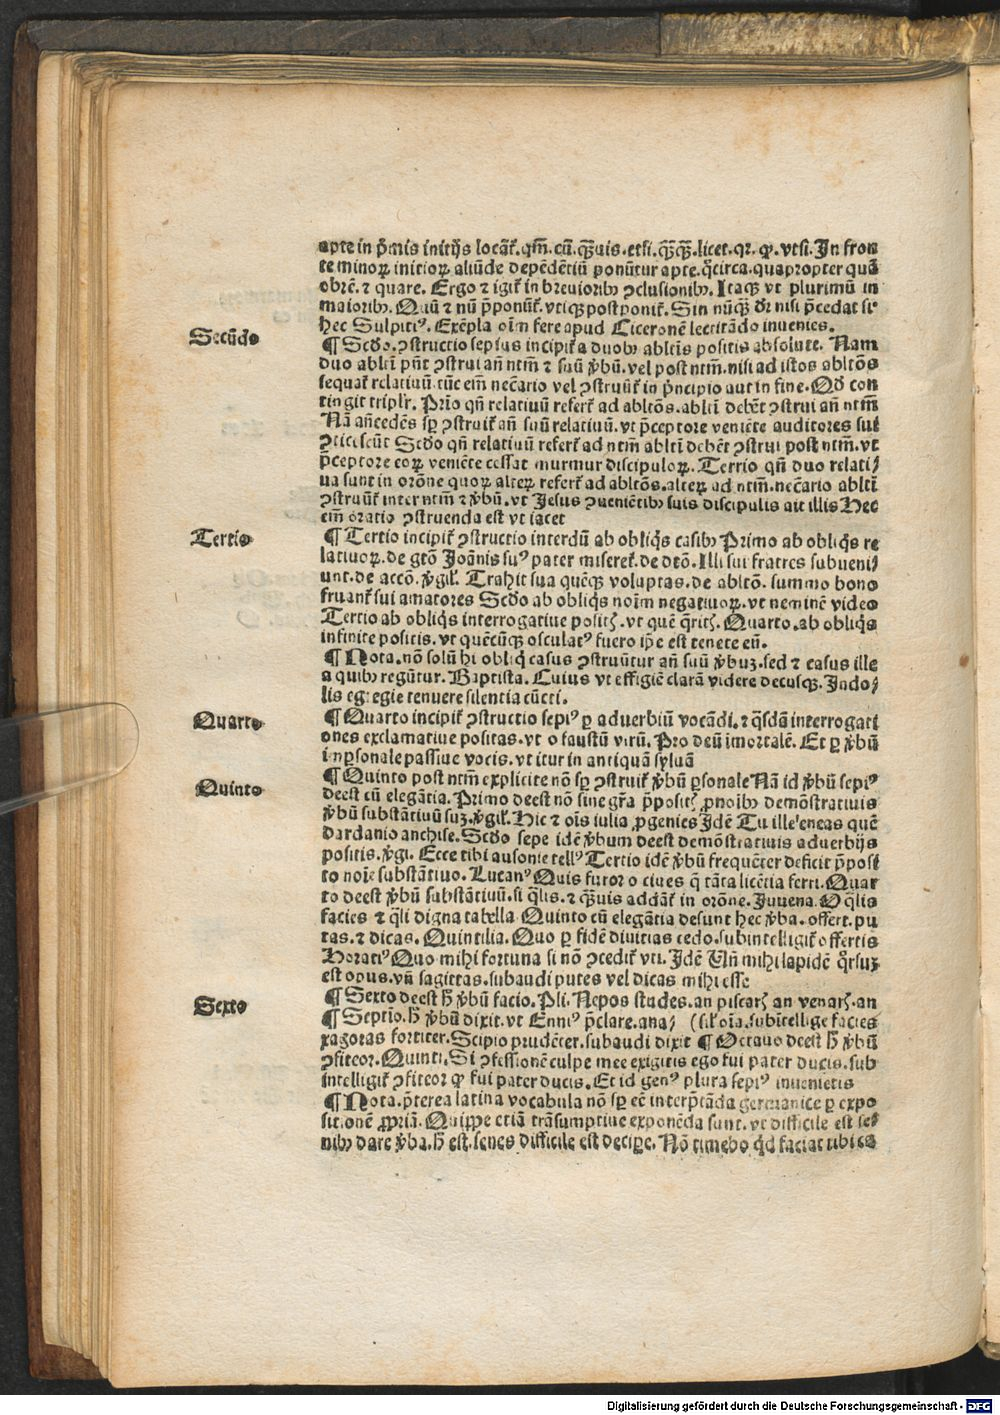 apte in p̄mis initijs locāt̃. qm̃. cū. q̃ꝫuis. etsi. q̃ꝫq̃ꝫ. licet. qꝛ. ꝙ. vtsi. In fron
te minoꝝ initioꝝ aliūde depēdētiū ponūtur apte. q̄circa. quapropter quā
obrē. ⁊ quare. Ergo ⁊ igit̃ in breuioribꝰ ꝯclusionibꝰ. Itaqꝫ vt plurimū in
maioribꝰ. Quū ⁊ nū p̄ponūt̃. vtiqꝫ postponit̃. Sin nūqꝫ dr̃ nisi p̄cedat si.
hec Sulpitiꝰ. Exēpla oīm fere apud Ciceronē lectitādo inuenies.
Secūdo
¶ Scd̃o. ꝯstructio sepius incipit̃ a duobꝰ abltīs positis absolute. Nam
duo abltī pn̄t ꝯstrui an̄ ntm̄ ⁊ suū ꝟbū. vel post ntm̄. nisi ad istos abltōs
sequat̃ relatiuū. tūc em̄ nec̄ario vel ꝯstruūt̃ in p̄ncipio aut in fine. Qd̄ con
tingit triplr̃. Prīo qn̄ relatiuū refert̃ ad abltōs. abltī debēt ꝯstrui an̄ ntm̄
Nā an̄cedēs sp̄ ꝯstruit̃ an̄ suū relatiuū. vt p̄ceptore veniēte auditores sui
ꝯticescūt Scd̃o qn̄ relatiuū refert̃ ad ntm̄ abltī debēt ꝯstrui post ntm̄. vt
p̄ceptore eoꝝ veniēte cessat murmur discipuloꝝ. Tertio qn̄ duo relati⸗
ua sunt in orōne quoꝝ alteꝝ refert̃ ad abltōs. alteꝝ ad ntm̄. nec̄ario abltī
ꝯstruūt̃ inter ntm̄ ⁊ ꝟbū. vt Jesus ꝯueniētibꝰ suis discipulis ait illis Hec
em̄ oratio ꝯstruenda est vt iacet
Tertio
¶ Tertio incipit̃ ꝯstructio interdū ab obliq̄s casibꝰ Primo ab obliq̄s re
latiuoꝝ. de gtō Joānis suꝰ pater miseret̃. de dtō. Illi sui fratres subueni⸗
unt. de accō. ꝟgil̃. Trahit sua quēqꝫ voluptas. de abltō. summo bono
fruant̃ sui amatores Scd̃o ab obliq̄s noīm negatiuoꝝ. vt neminē video
Tertio ab obliq̄s interrogatiue positꝭ. vt quē q̄ritꝭ. Quarto. ab obliq̄s
infinite positis. vt quēcūqꝫ osculatꝰ fuero ip̄e est tenete eū.
¶ Nota. nō solū hi obliq̄ casus ꝯstruūtur an̄ suū ꝟbuꝫ. sed ⁊ casus ille
a quibꝰ regūtur. Baptista. Cuius vt effigiē clarā videre decusqꝫ. Indo⸗
lis egregie tenuere silentia cūcti.
Quarto
¶ Quarto incipit̃ ꝯstructio sepiꝰ ꝑ aduerbiū vocādi. ⁊ q̄sdā interrogati
ones exclamatiue positas. vt o faustū virū. Pro deū īmortalē. Et ꝑ ꝟbū
inpersonale passiue vocis. vt itur in antiquā syluā
Quinto
¶ Quinto post ntm̄ explicite nō sp̄ ꝯstruit̃ ꝟbū ꝑsonale Nā id ꝟbū sepiꝰ
deest cū elegātia. Primo deest nō sine gr̃a p̄positꝭ ꝓnoībꝰ demōstratiuis
ꝟbū substātiuū suꝫ. ꝟgil̃. Hic ⁊ oīs iulia ꝓgenies Idē Tu ille eneas quē
dardanio anchise. Scd̃o sepe idē ꝟbum deest demōstratiuis aduerbijs
positis. ꝟgi. Ecce tibi ausonie tellꝰ Tertio idē ꝟbū frequēter deficit p̄posi
to noīe substātiuo. Lucanꝰ Quis furor o ciues q̄ tāta licētia ferri. Quar
to deest ꝟbū substātiuū. si q̄lis. ⁊ q̃ꝫuis addat̃ in orōne. Juuena. O q̄lis
facies ⁊ q̄li digna tabella Quinto cū elegātia desunt hec ꝟba. offert. pu
tas. ⁊ dicas. Quintilia. Quo ꝑ fidē diuitias cedo. subintelligit̃ offertis
Horatiꝰ Quo mihi fortuna si nō ꝯcedit̃ vti. Idē Vn̄ mihi lapidē q̄rsuꝫ
est opus. vn̄ sagittas. subaudi putes vel dicas mihi esse
Sexto
¶ Sexto deest h̄ ꝟbū facio. Pli. Nepos studes. an piscarꝭ an venarꝭ. an
¶ Septīo. h̄ ꝟbū dixit. vt Enniꝰ p̄clare. ana⸗ (sil̃ oīa. subītellige facies
xagoras fortiter. Scipio prudēter. subaudi dixit ¶ Octauo deest h̄ ꝟbū
ꝯfiteor. Quinti. Si ꝯfessionē culpe mee exigitis ego fui pater ducis. sub
intelligit̃ ꝯfiteor ꝙ fui pater ducis. Et id genꝰ plura sepiꝰ inuenietis
¶ Nota. p̄terea latina vocabula nō sp̄ eē interp̄tāda germanice ꝑ expo
sitionē ꝓpriā. Quippe etiā trāsumptiue exponēda sunt. vt difficile est se⸗
nibꝰ dare ꝟba. h̄ est. senes difficile est decipe. Nō timebo q̄d faciat tibi ca
Digitalisierung gefördert durch die Deutsche Forschungsgemeinschaft - DFG